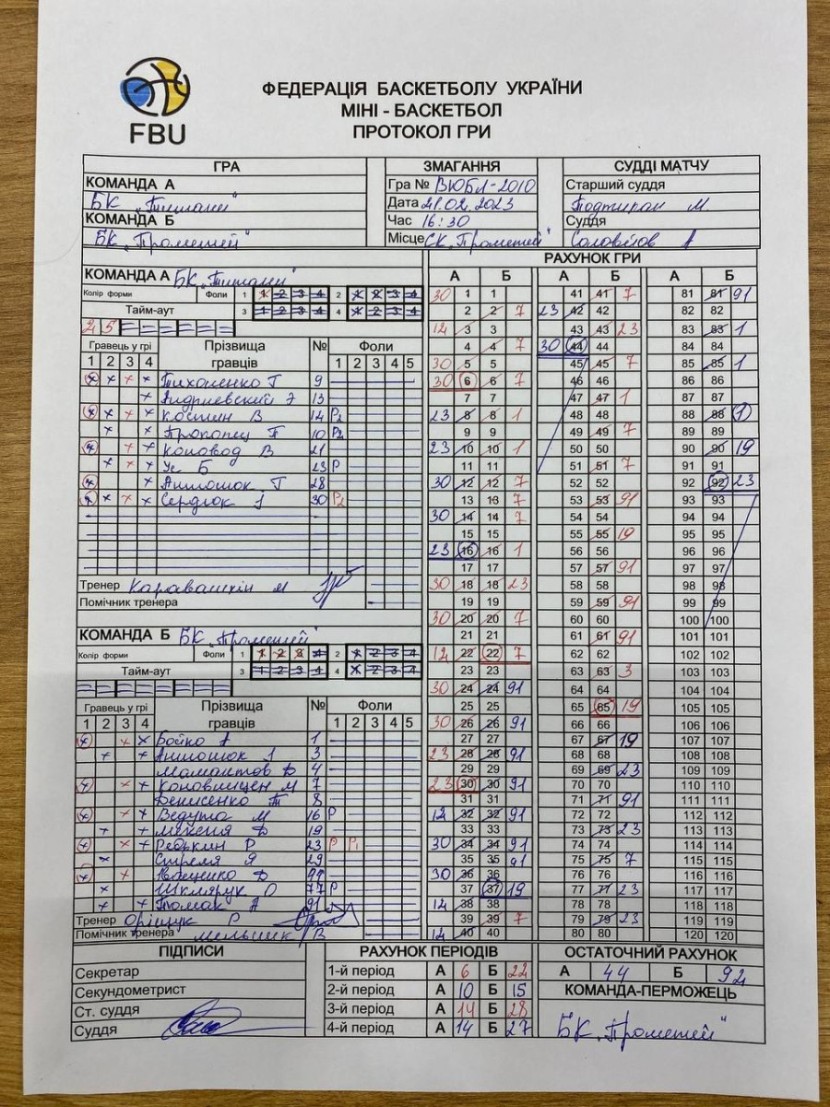 FBU
ФЕДЕРАЦІЯ БАСКЕТБОЛУ УКРАЇНИ
МІНІ - БАСКЕТБОЛ
ПРОТОКОЛ ГРИ
ГРА ЗМАГАННЯ СУДДІ МАТЧУ
КОМАНДА А Гра № ВЮБЛ-2010 Старший суддя
БК „Титани" Дата 21.02.2023
КОМАНДА Б Час 16:30 Суддя
БК „Прометей" Місце СК „Прометей" Соловйов А
КОМАНДА А БК „Титани" РАХУНОК ГРИ
А Б А Б А Б
Колір форми Фоли 1 1 2 3 4 2 1 2 3 4
Тайм-аут 3 1 2 3 4 4 1 2 3 4
2 5
Гравець у грі Прізвища гравців № Фоли
1 2 3 4 1 2 3 4 5
Тихоненко Т 9
Андриевский Э 13
Костин В 14 P2
Прокопец Т 10 P2
Коновод В 21
Ус Б 23 P
Анпошок Т 28
Сердюк 30 P2
Тренер Каравашкін М
Помічник тренера
КОМАНДА Б БК „Прометей"
Колір форми Фоли 1 1 2 3 4 2 1 2 3 4
Тайм-аут 3 1 2 3 4 4 1 2 3 4
Гравець у грі Прізвища гравців № Фоли
1 2 3 4 1 2 3 4 5
Бойко А 1
3
4
7
Денисенко 8
Ведута М 16 P
19
Редькин Р 23 P P1
Стреля Я 29
Шклярук О 77 P
91
Тренер Оріщук Р
Помічник тренера Мельник В
30 1 1
2 2 7
14 3 3
4 4 7
30 5 5
30 6 6 7
7 7
23 8 8 1
9 9
23 10 10 1
11 11
30 12 12 7
13 13 7
30 14 14 7
15 15
23 16 16 1
17 17
30 18 18 23
19 19
30 20 20 7
21 21
14 22 22 7
23 23
30 24 24 91
25 25
30 26 26 91
27 27
23 28 28 91
29 29
23 30 30 91
31 31
14 32 32 91
33 33
30 34 34 91
35 35 91
30 36 36
37 37 19
14 38 38
39 39 7
14 40 40
41 41 7
23 42 42
43 43 23
30 44 44
45 45 7
46 46
47 47 1
48 48
49 49 7
50 50
51 51 7
52 52
53 53 91
54 54
55 55 19
56 56
57 57 91
58 58
59 59 91
60 60
61 61 91
62 62
63 63 3
64 64
65 65 19
66 66
67 67 19
68 68
69 69 23
70 70
71 71 91
72 72
73 73 23
74 74
75 75 7
76 76
77 77 23
78 78
79 79 23
80 80
81 81 91
82 82
83 83 1
84 84
85 85 1
86 86
87 87
88 88 1
89 89
90 90 19
91 91
92 92 23
93 93
94 94
95 95
96 96
97 97
98 98
99 99
100 100
101 101
102 102
103 103
104 104
105 105
106 106
107 107
108 108
109 109
110 110
111 111
112 112
113 113
114 114
115 115
116 116
117 117
118 118
119 119
120 120
ПІДПИСИ РАХУНОК ПЕРІОДІВ ОСТАТОЧНИЙ РАХУНОК
Секретар 1-й період А 6 Б 22 А 44 Б 92
Секундометрист 2-й період А 10 Б 15 КОМАНДА-ПЕРМОЖЕЦЬ
Ст. суддя 3-й період А 14 Б 28 БК „Прометей"
Суддя 4-й період А 14 Б 27